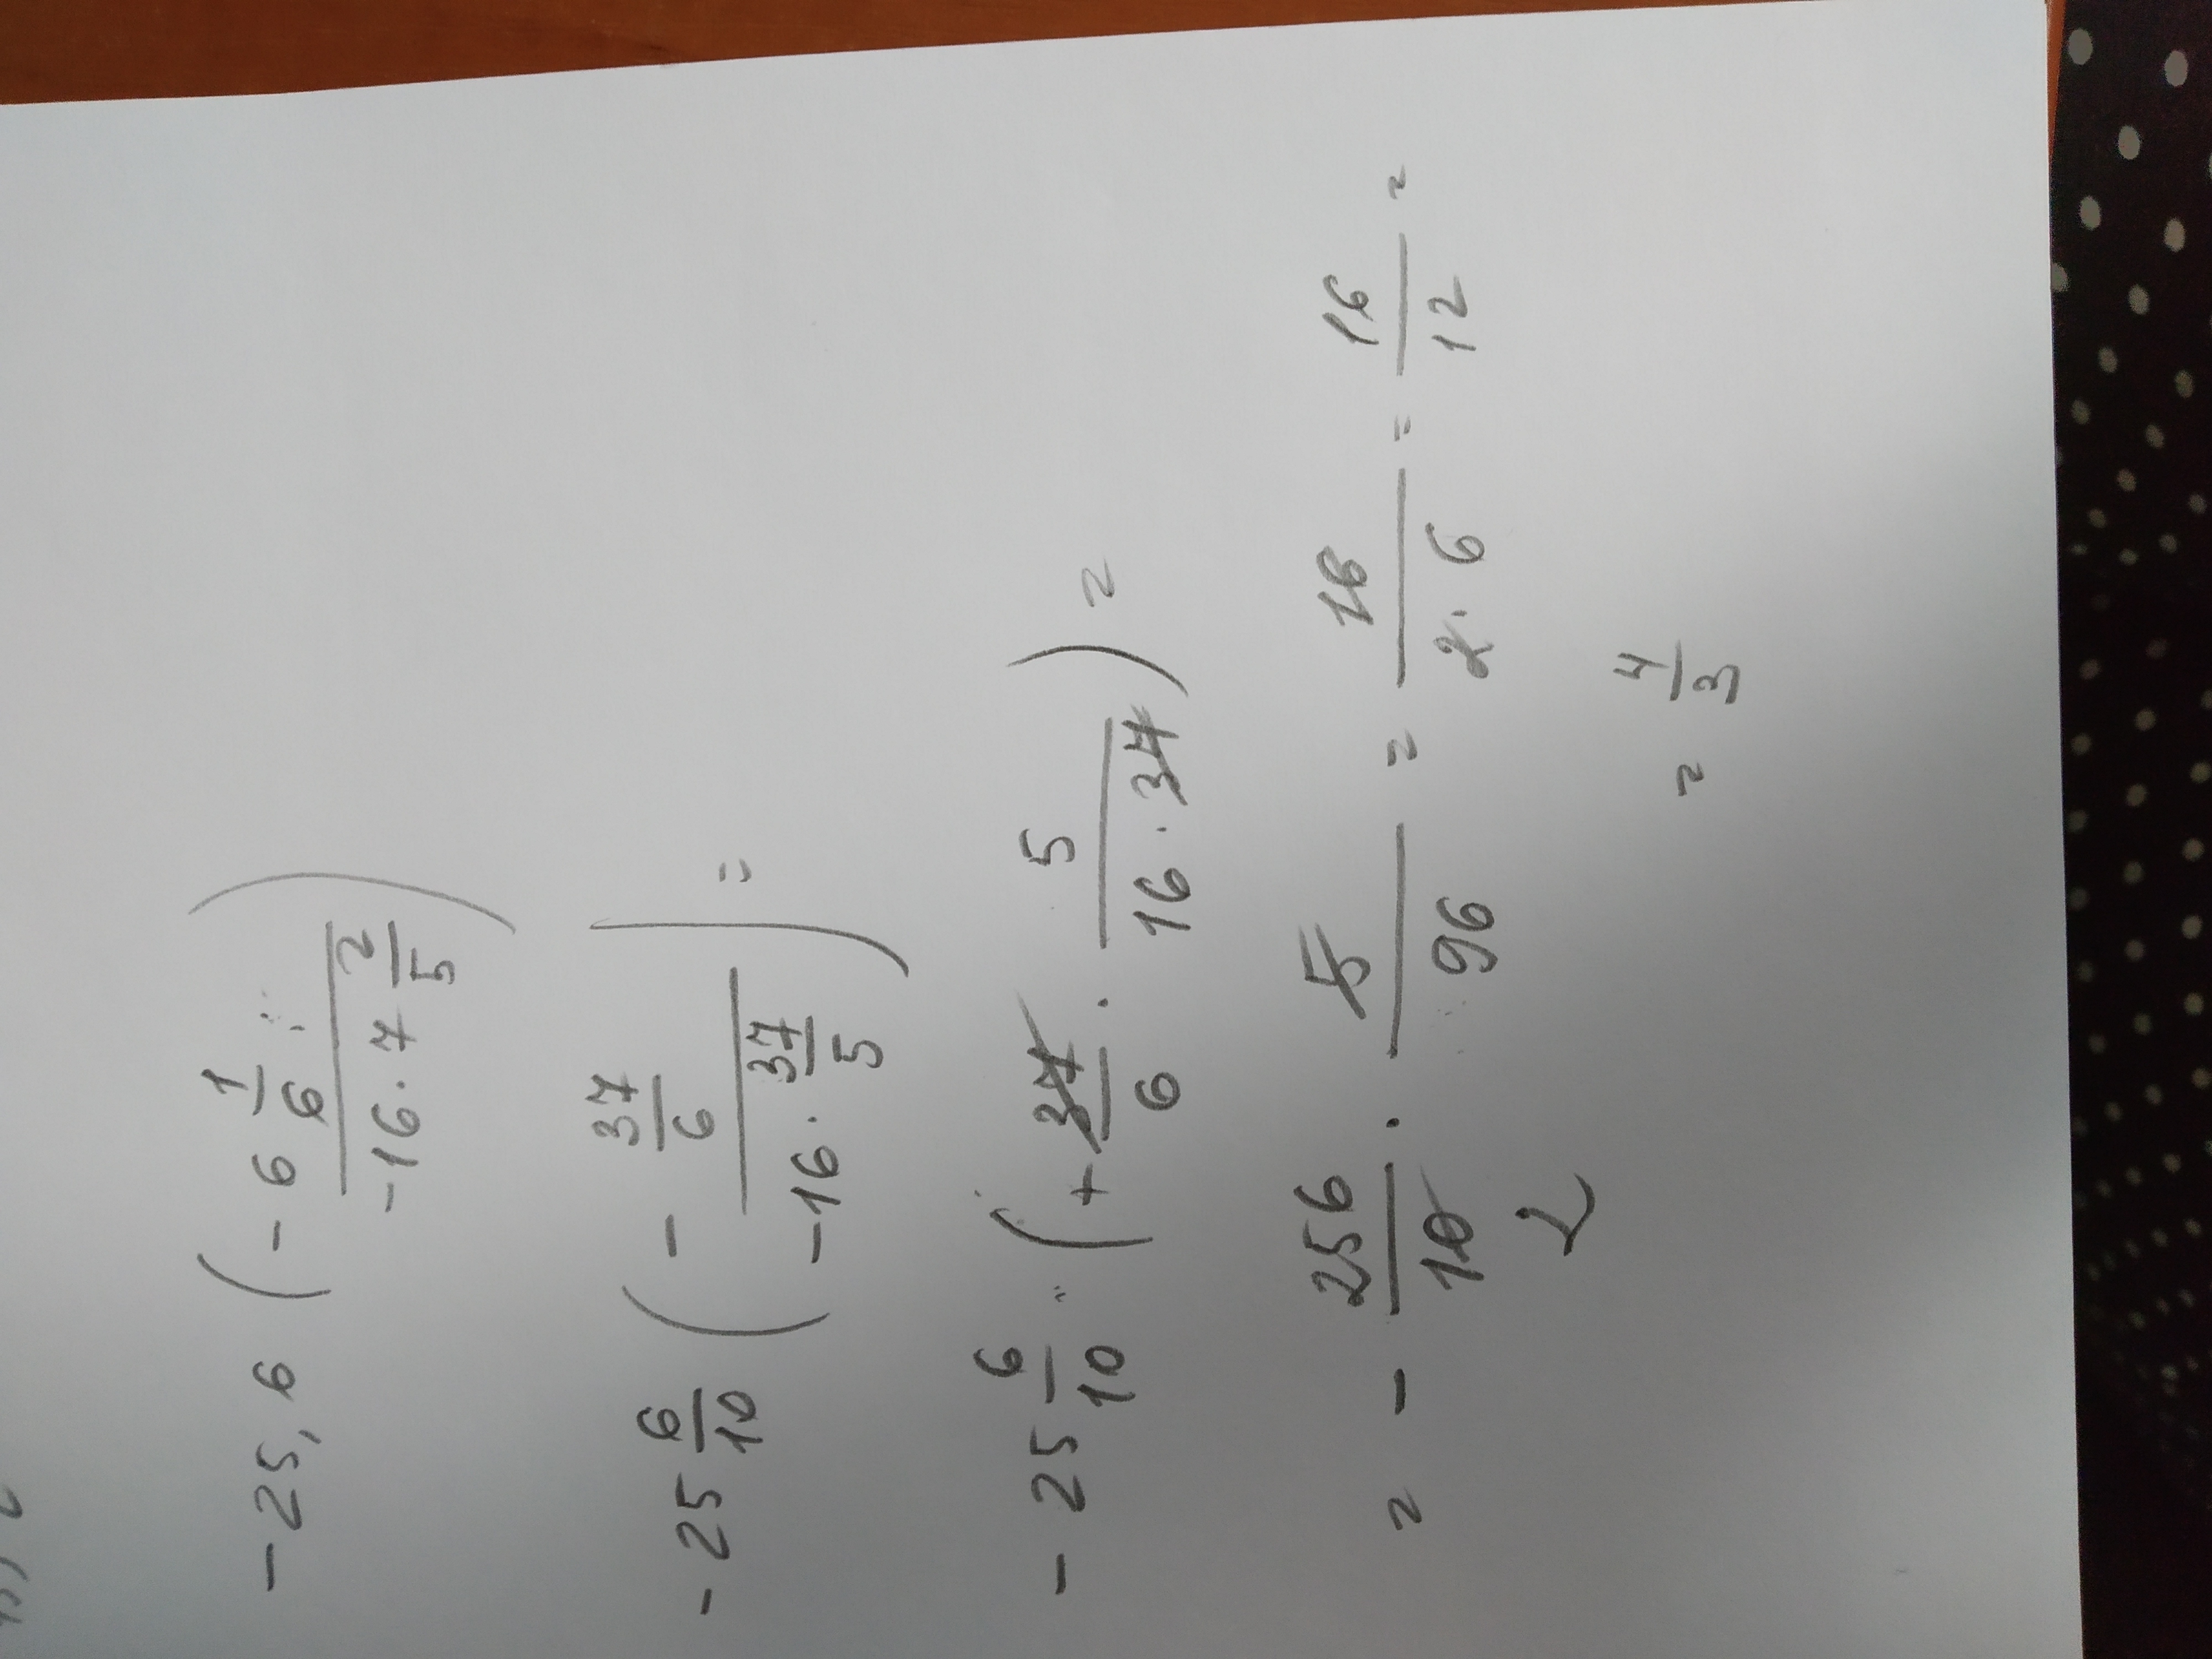 -25,6 (-6 1/6 : / -16 · 7 2/5)
-25 6/10 (- 37/6 / -16 · 37/5) =
-25 6/10 · (+ 37/6 · 5 / 16 · 37) =
= - 256/10 · 5/96 = 16 / 2 · 6 = 16/12 =
2
= 4/3